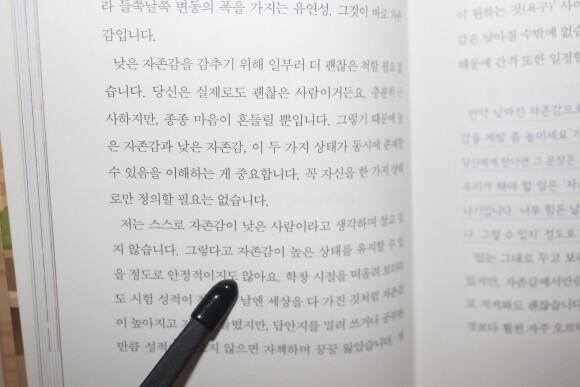 라 들쑥날쑥 변동의 폭을 가지는 유연성. 그것이 바로 자존
감입니다.
낮은 자존감을 감추기 위해 일부러 더 괜찮은 척할 필요 없
습니다. 당신은 실제로도 괜찮은 사람이거든요. 충분히 근
사하지만, 종종 마음이 흔들릴 뿐입니다. 그렇기 때문에 높
은 자존감과 낮은 자존감, 이 두 가지 상태가 동시에 존재할
수 있음을 이해하는 게 중요합니다. 꼭 자신을 한 가지 상태
로만 정의할 필요는 없습니다.
저는 스스로 자존감이 낮은 사람이라고 생각하며 살고 있
지 않습니다. 그렇다고 자존감이 높은 상태를 유지할 수 있
을 정도로 안정적이지도 않아요. 학창 시절을 떠올려 보더라
도 시험 성적이 날엔 세상을 다 가진 것처럼 자존감
이 높아지고 지만, 답안지를 밀려 쓰거나 공부한
만큼 성적 않으면 자책하며 끙끙 앓았습니다.
이 원하는 것(욕구)' 사이
감은 낮아질 수밖에 없습
때문에 간격 또한 일정할
만약 낮아진 자존감으로
감을 제발 좀 높이세요
당신에게 한다면 그 문장은
우리가 해야 할 일은
나기'입니다. 너무 힘든 날
나. 그럴 수 있지' 정도로
'있는 그대로 두고 보
있지만, 자존감에서만큼
로 지켜봐도 괜찮습니다
것보다 훨씬 자주 오르